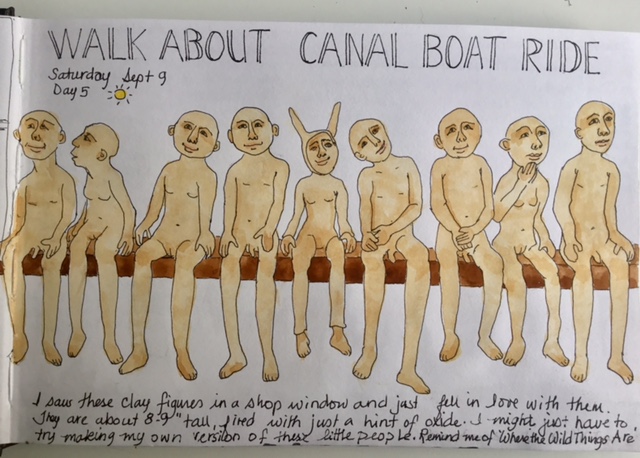 WALK ABOUT CANAL BOAT RIDE
Saturday Sept 9
Day 5
I saw these clay figures in a shop window and just fell in love with them.
They are about 8-9" tall, fired with just a hint of oxide. I might just have to
try making my own version of these little people. Remind me of "Where the Wild Things Are